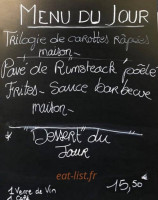 MENU DU JOUR
Trilogie de carottes râpées
maison
Pavé de Rumsteack poêlé
Frites - Sauce barbecue
maison
"Dessert" du
Jour
eat-list.fr
1 Verre de Vin
15,50
1 Café